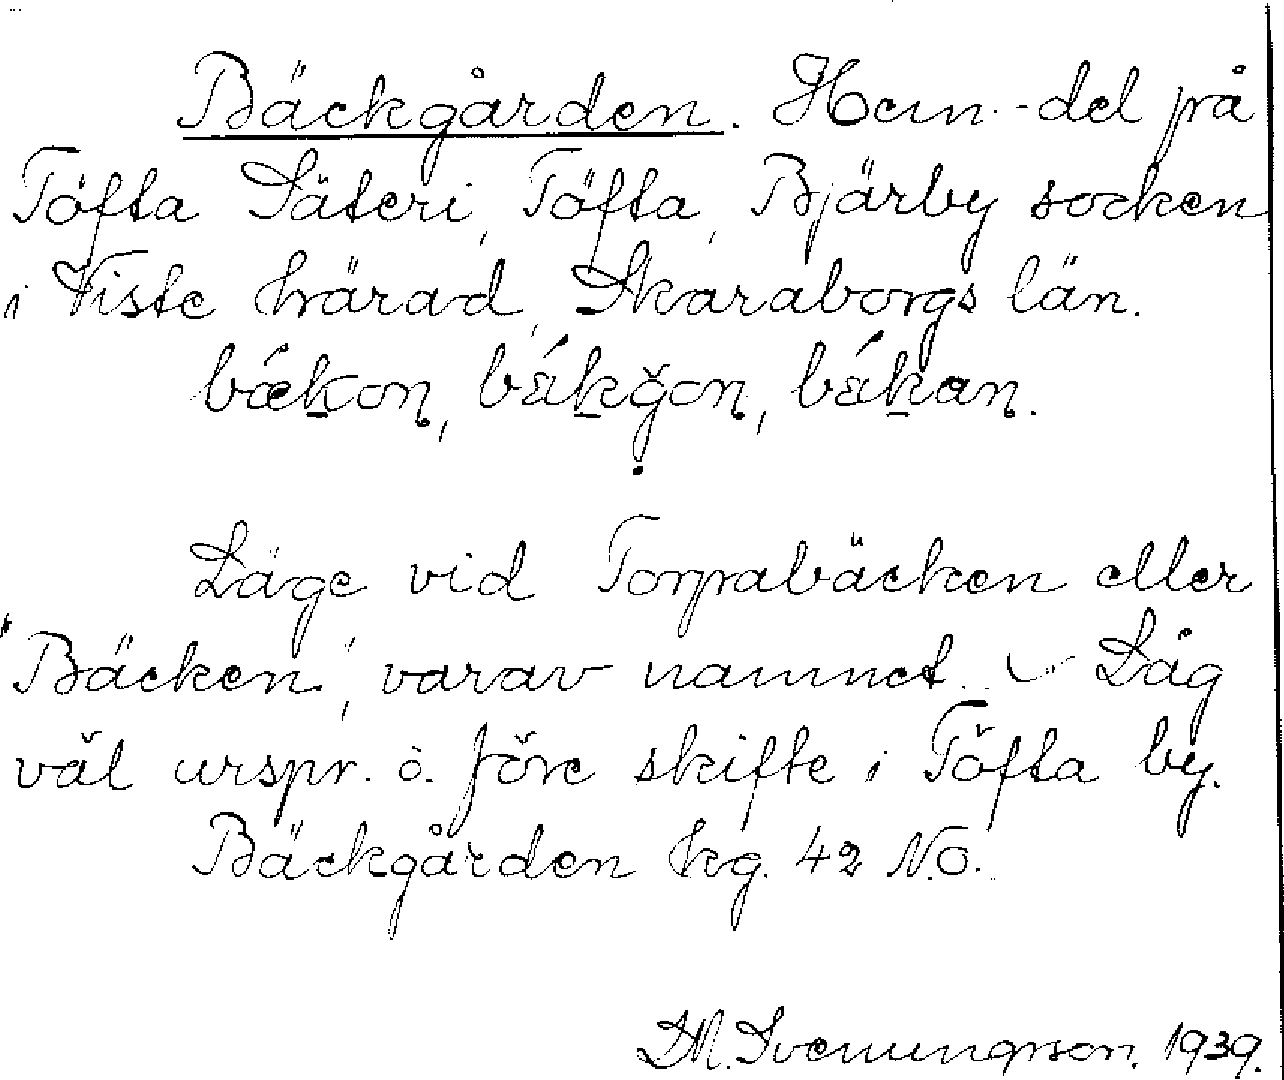 Bäckgården. Hem.-del på
Töfta Säteri, Töfta, Bjärby socken
i Viste härad, Skaraborgs län.
Läge vid Torpabäcken eller
"Bäcken", varav namnet. Låg
väl urspr. o. före skifte i Töfta by.
Bäckgården kg. 42 NO.
1939.